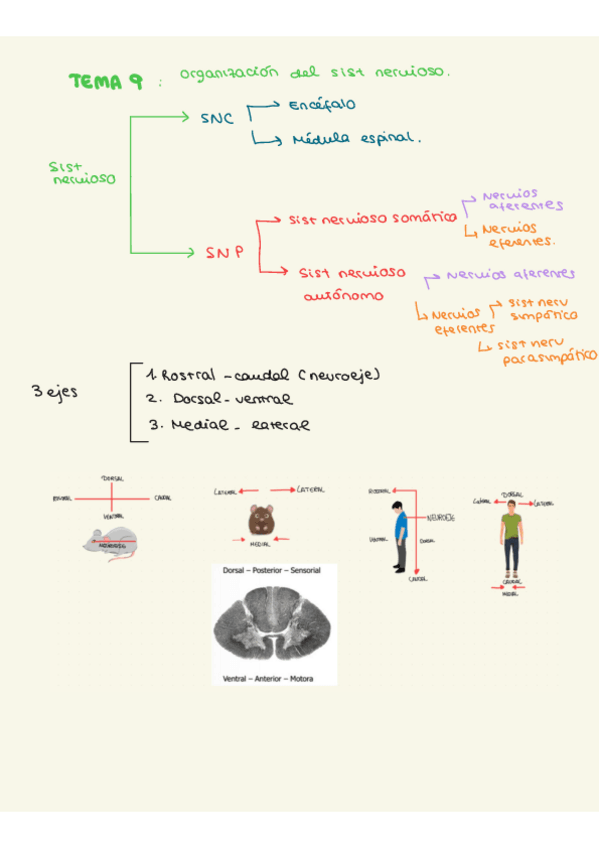 TEMA 9 : organización del sist nervioso.
Sist nervioso
SNC
Encéfalo
Médula espinal.
SNP
Sist nervioso somático
Nervios aferentes
Nervios eferentes.
Sist nervioso autónomo
Nervios aferentes
Nervios eferentes
Sist nerv simpático
sist nerv parasimpático
3 ejes
1. Rostral - caudal (neuroeje)
2. Dorsal - ventral
3. Medial - lateral
DORSAL
ROSTRAL
CAUDAL
VENTRAL
NEUROEJE
LATERAL
LATERAL
MEDIAL
ROSTRAL
NEUROEJE
VENTRAL
DORSAL
CAUDAL
DORSAL
LATERAL
LATERAL
CAUDAL
MEDIAL
Dorsal – Posterior – Sensorial
Ventral – Anterior – Motora